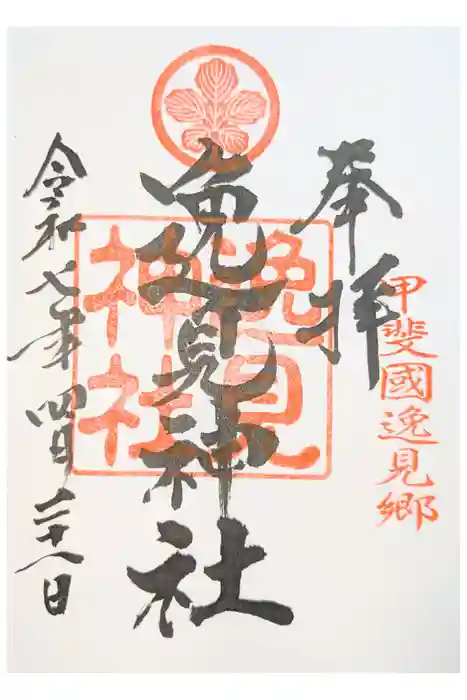 甲斐國逸見郷
奉拝
逸見神社
逸見
神社
令和七年四月二十八日